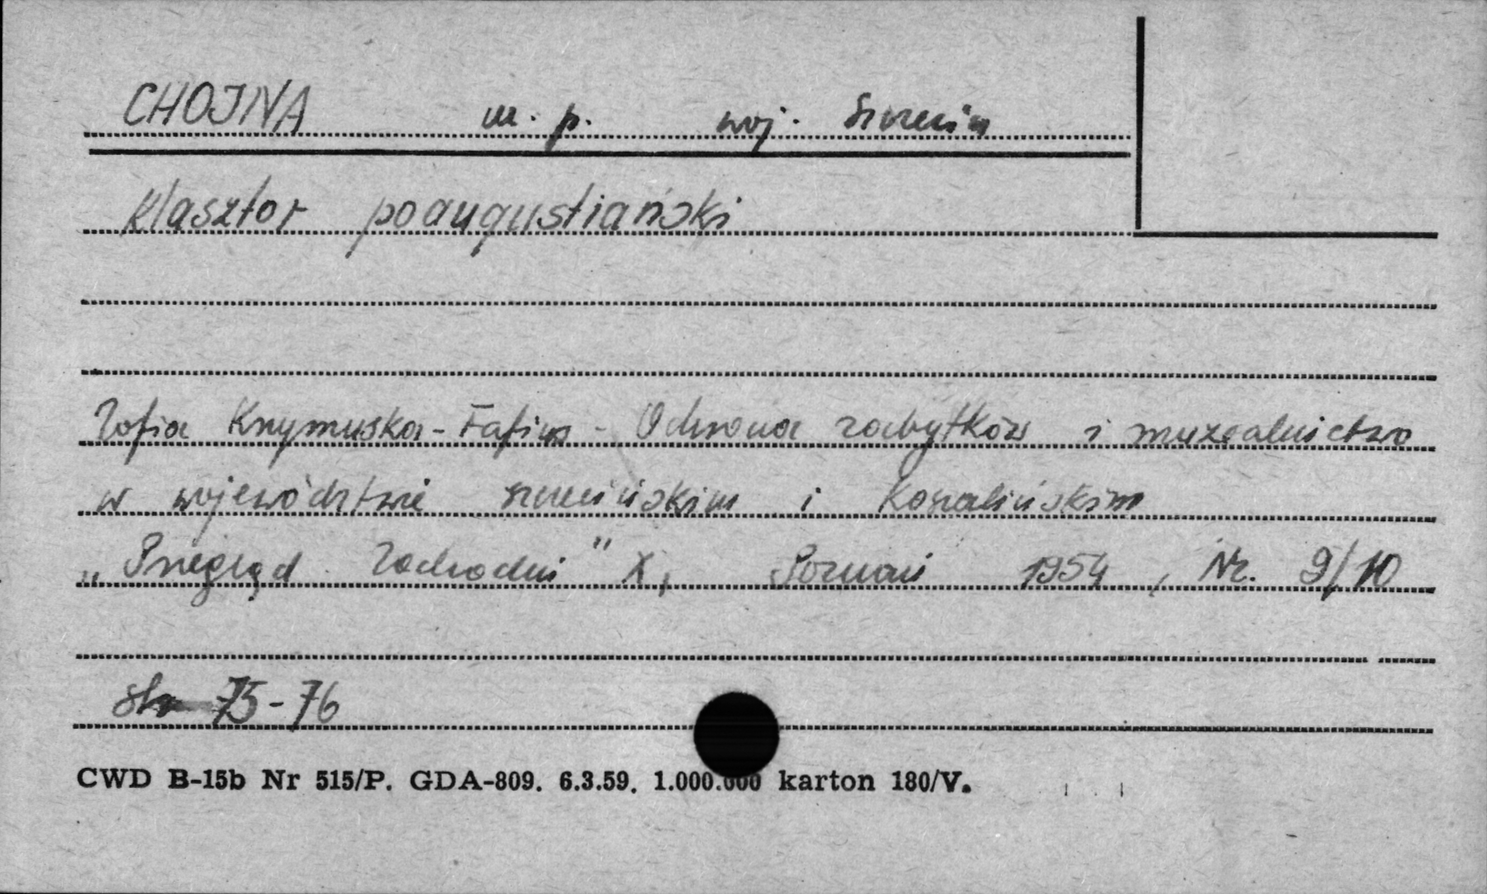 CHOJNA m. p. woj. Szczecin
Klasztor poaugustiański
Zofia Krzymuska-Fafius - Ochrona zabytków i muzealnictwo
w województwie szczecińskim i koszalińskim
„Przegląd Zachodni" X, Poznań 1954, Nr. 9/10
str 75-76
CWD B-15b Nr 515/P. GDA-809. 6.3.59. 1.000.000 karton 180/V.